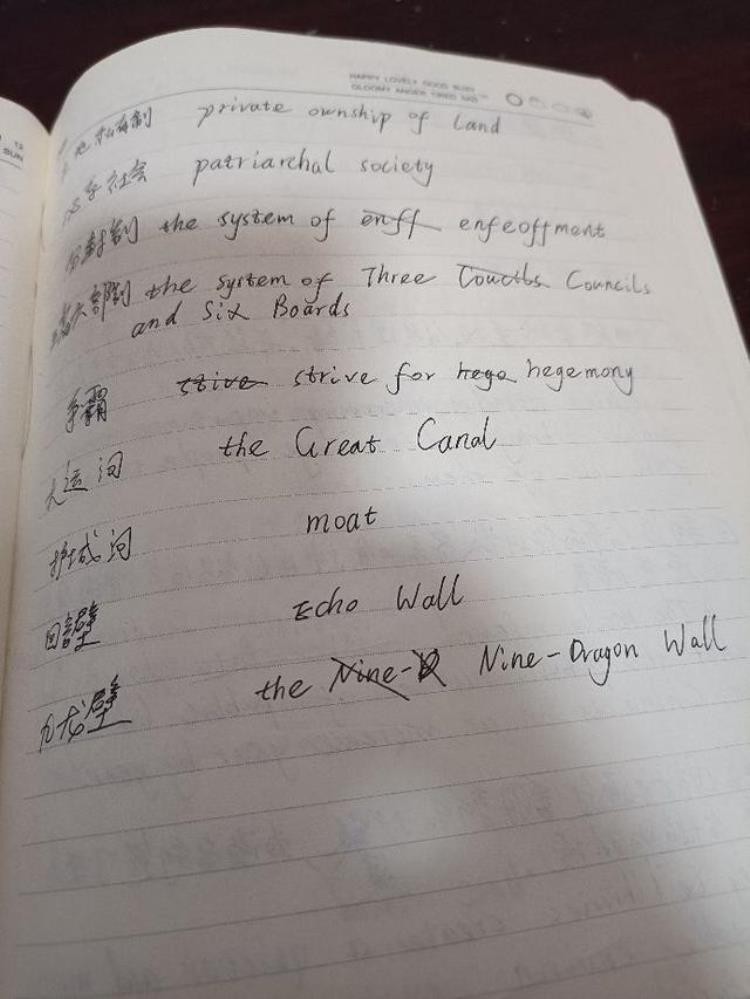 HAPPY LOVELY GOOD
GLOOMY ANGER TIRED
SUN
土地私有制 private ownship of land
父系社会 patriarchal society
分封制 the system of enff enfeoffment
三省六部制 the system of Three Coucils Councils
and Six Boards
争霸 stive strive for hege hegemony
大运河 the Great Canal
护城河 moat
回音壁 Echo Wall
九龙壁 the Nine-D Nine-Dragon Wall